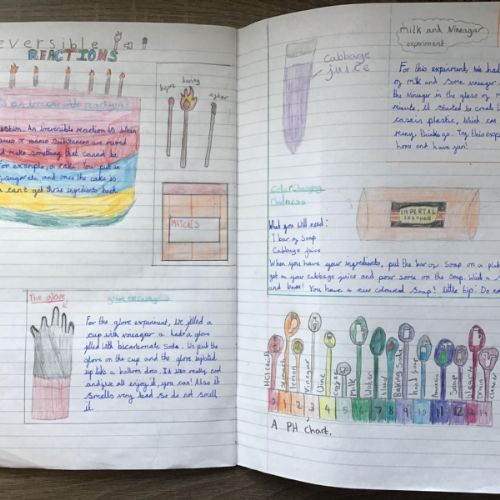 eversible
REACTIONS
an irreversible reaction?
An irreversible reaction is when
or more substances are mixed
and make something that cannot be
For example, a cake. You put in
sugar etc and once the cake is
can't get those ingredients back
before
during
after
MATCHES
The glove
For the glove experiment, We filled a
cup with vinegar a had a glove
filled with bicarbonate Soda. We put the
glove on the cup and the glove inflated
up like a balloon does. It was really cool
and we all enjoy it, you can! Also it
smells very bad so do not smell
it.
Cabbage
juice
milk and Vineagar
experiment
For this experiment, We had
of milk and some vinegar
the vinegar in the glass of m
minute, it started to curdle
casein plastic, Which can
many things. Try this exp
home and have fun!
Colour Changing
Madness
IMPERIAL
LEATHER
What you will need:
1 bar of Soap
Cabbage juice
When you have your ingredients, put the bar of Soap on a plat
get a your cabbage juice and pour some on the Soap. Wait a
and boom! You have a new coloured Soap! little tip: Do
Stomach
Lemon
Vinegar
Wine
Milk
Water
Baking Soda
hand soap
Soap
Bleach
Drain
0 1 2 3 4 5 6 7 8 9 10 11 12 13 14
A PH Chart.